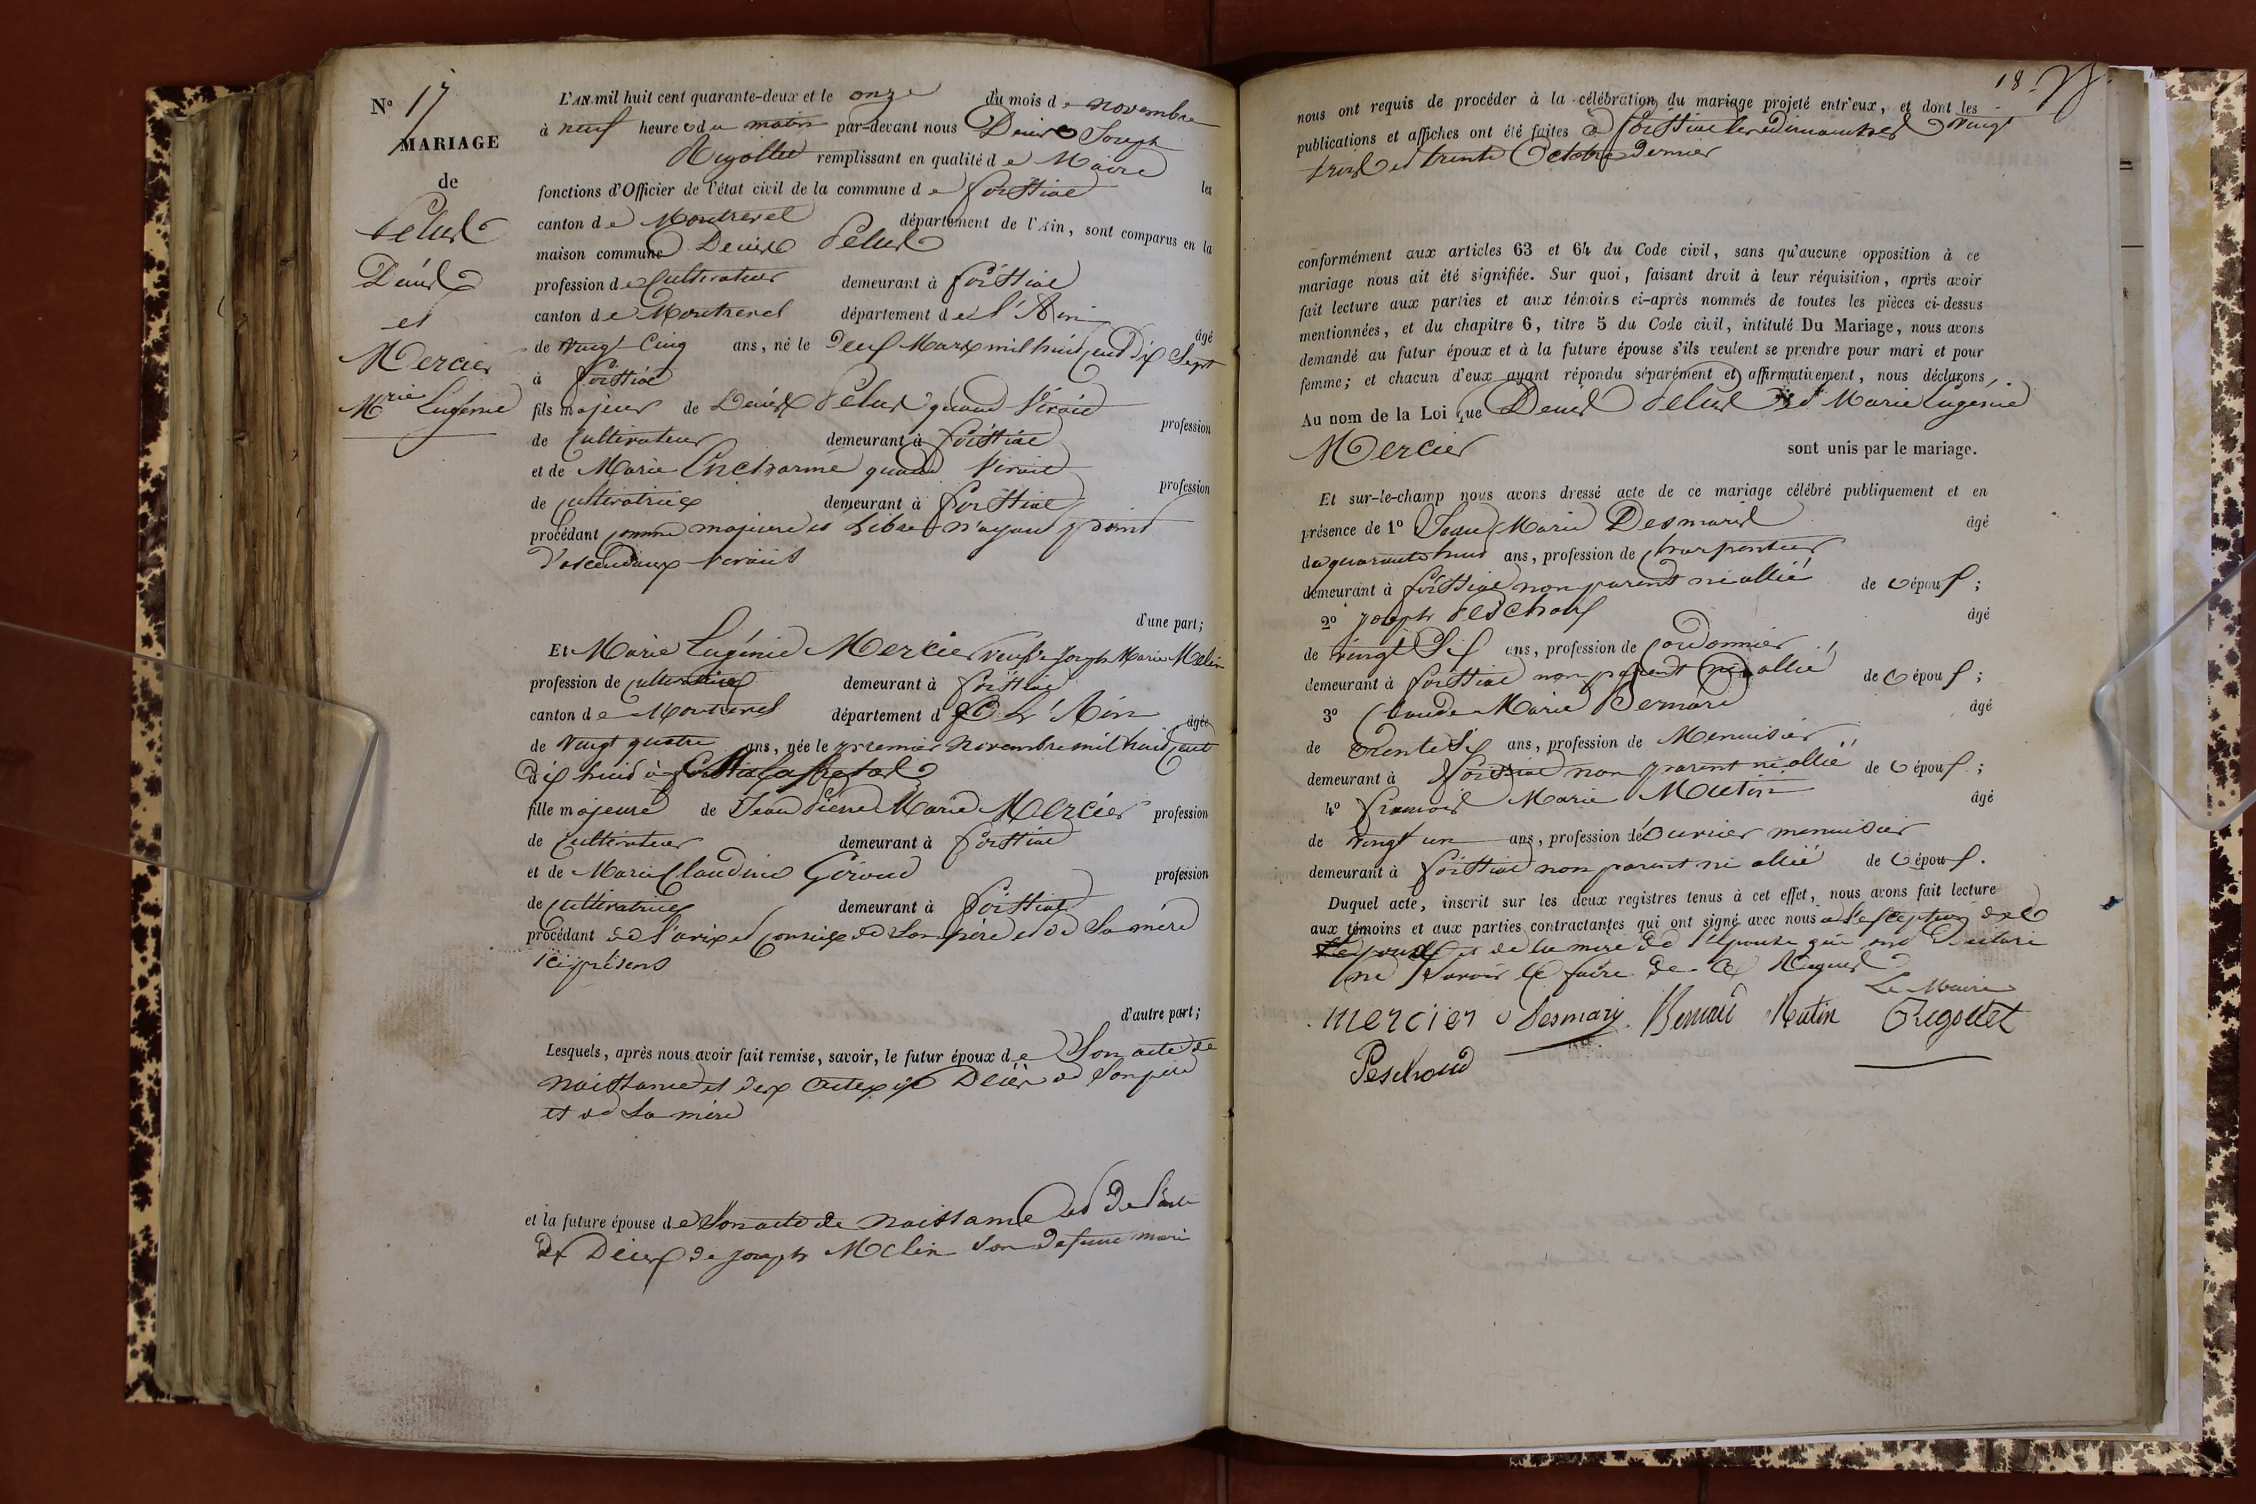 N° 17
MARIAGE
de
Pelus
Denis
et
Mercier
Mrie Eugénie
L'AN mil huit cent quarante-deux et le onze du mois de novembre
à neuf heures du matin par-devant nous Denis Joseph
Rigollet remplissant en qualité de Maire les
fonctions d'Officier de l'état civil de la commune de foissiat
canton de Montrevel département de l'Ain, sont comparus en la
maison commune Denis Pelus
profession de Cultivateur demeurant à foissiat
canton de Montrevel département de l'Ain âgé
de vingt Cinq ans, né le deux Mars mil huit cent dix Sept
à foissiat
fils majeur de Denis Pelus quand vivait profession
de Cultivateur demeurant à foissiat
et de Marie Encharmé quand vivait profession
de cultivatrice demeurant à foissiat
procédant comme majeur et Libre n'ayant point
d'ascendaux vivants
d'une part;
Et Marie Eugénie Mercier veuve Joseph Marie Melin
profession de cultivatrice demeurant à foissiat
canton de Montrevel département de L'Ain âgée
de vingt quatre ans, née le premier novembre mil huit cent
dix huit à
fille majeure de Jean Pierre Marie Mercier profession
de Cultivateur demeurant à foissiat
et de Marie Claudine Géroud profession
de cultivatrice demeurant à foissiat
procédant de l'avis et conseil de son père et de sa mère
ici présens
d'autre part;
Lesquels, après nous avoir fait remise, savoir, le futur époux de Son acte de
naissance et des actes de Décès de son père
et de sa mère
et la future épouse de Son acte de naissance et de l'acte
de Décès de joseph Melin son défunt mari
18.
nous ont requis de procéder à la célébration du mariage projeté entr'eux, et dont les
publications et affiches ont été faites à foissiat les dimanches vingt
trois et trente Octobre dernier
conformément aux articles 63 et 64 du Code civil, sans qu'aucune opposition à ce
mariage nous ait été signifiée. Sur quoi, faisant droit à leur réquisition, après avoir
fait lecture aux parties et aux témoins ci-après nommés de toutes les pièces ci-dessus
mentionnées, et du chapitre 6, titre 5 du Code civil, intitulé Du Mariage, nous avons
demandé au futur époux et à la future épouse s'ils veulent se prendre pour mari et pour
femme; et chacun d'eux ayant répondu séparément et affirmativement, nous déclarons,
Au nom de la Loi que Denis Pelus et Marie Eugénie
Mercier sont unis par le mariage.
Et sur-le-champ nous avons dressé acte de ce mariage célébré publiquement et en
présence de 1° Jean Marie Desmaris âgé
de quarante huit ans, profession de charpentier
demeurant à foissiat non parent ni allié de l'époux;
2° joseph Peschoux âgé
de vingt Six ans, profession de cordonnier
demeurant à foissiat non parent ni allié de l'époux;
3° Claude Marie Bernard âgé
de trente Six ans, profession de Menuisier
demeurant à foissiat non parent ni allié de l'époux;
4° francois Marie Mutin âgé
de vingt un ans, profession de ouvrier menuisier
demeurant à foissiat non parent ni allié de l'époux.
Duquel acte, inscrit sur les deux registres tenus à cet effet, nous avons fait lecture
aux témoins et aux parties contractantes qui ont signé avec nous à l'exception des
et de la mère de l'épouse qui ont déclaré
ne savoir le faire de ce Requis
Le Maire
Mercier Desmaris Bernard Mutin Rigollet
Peschoud